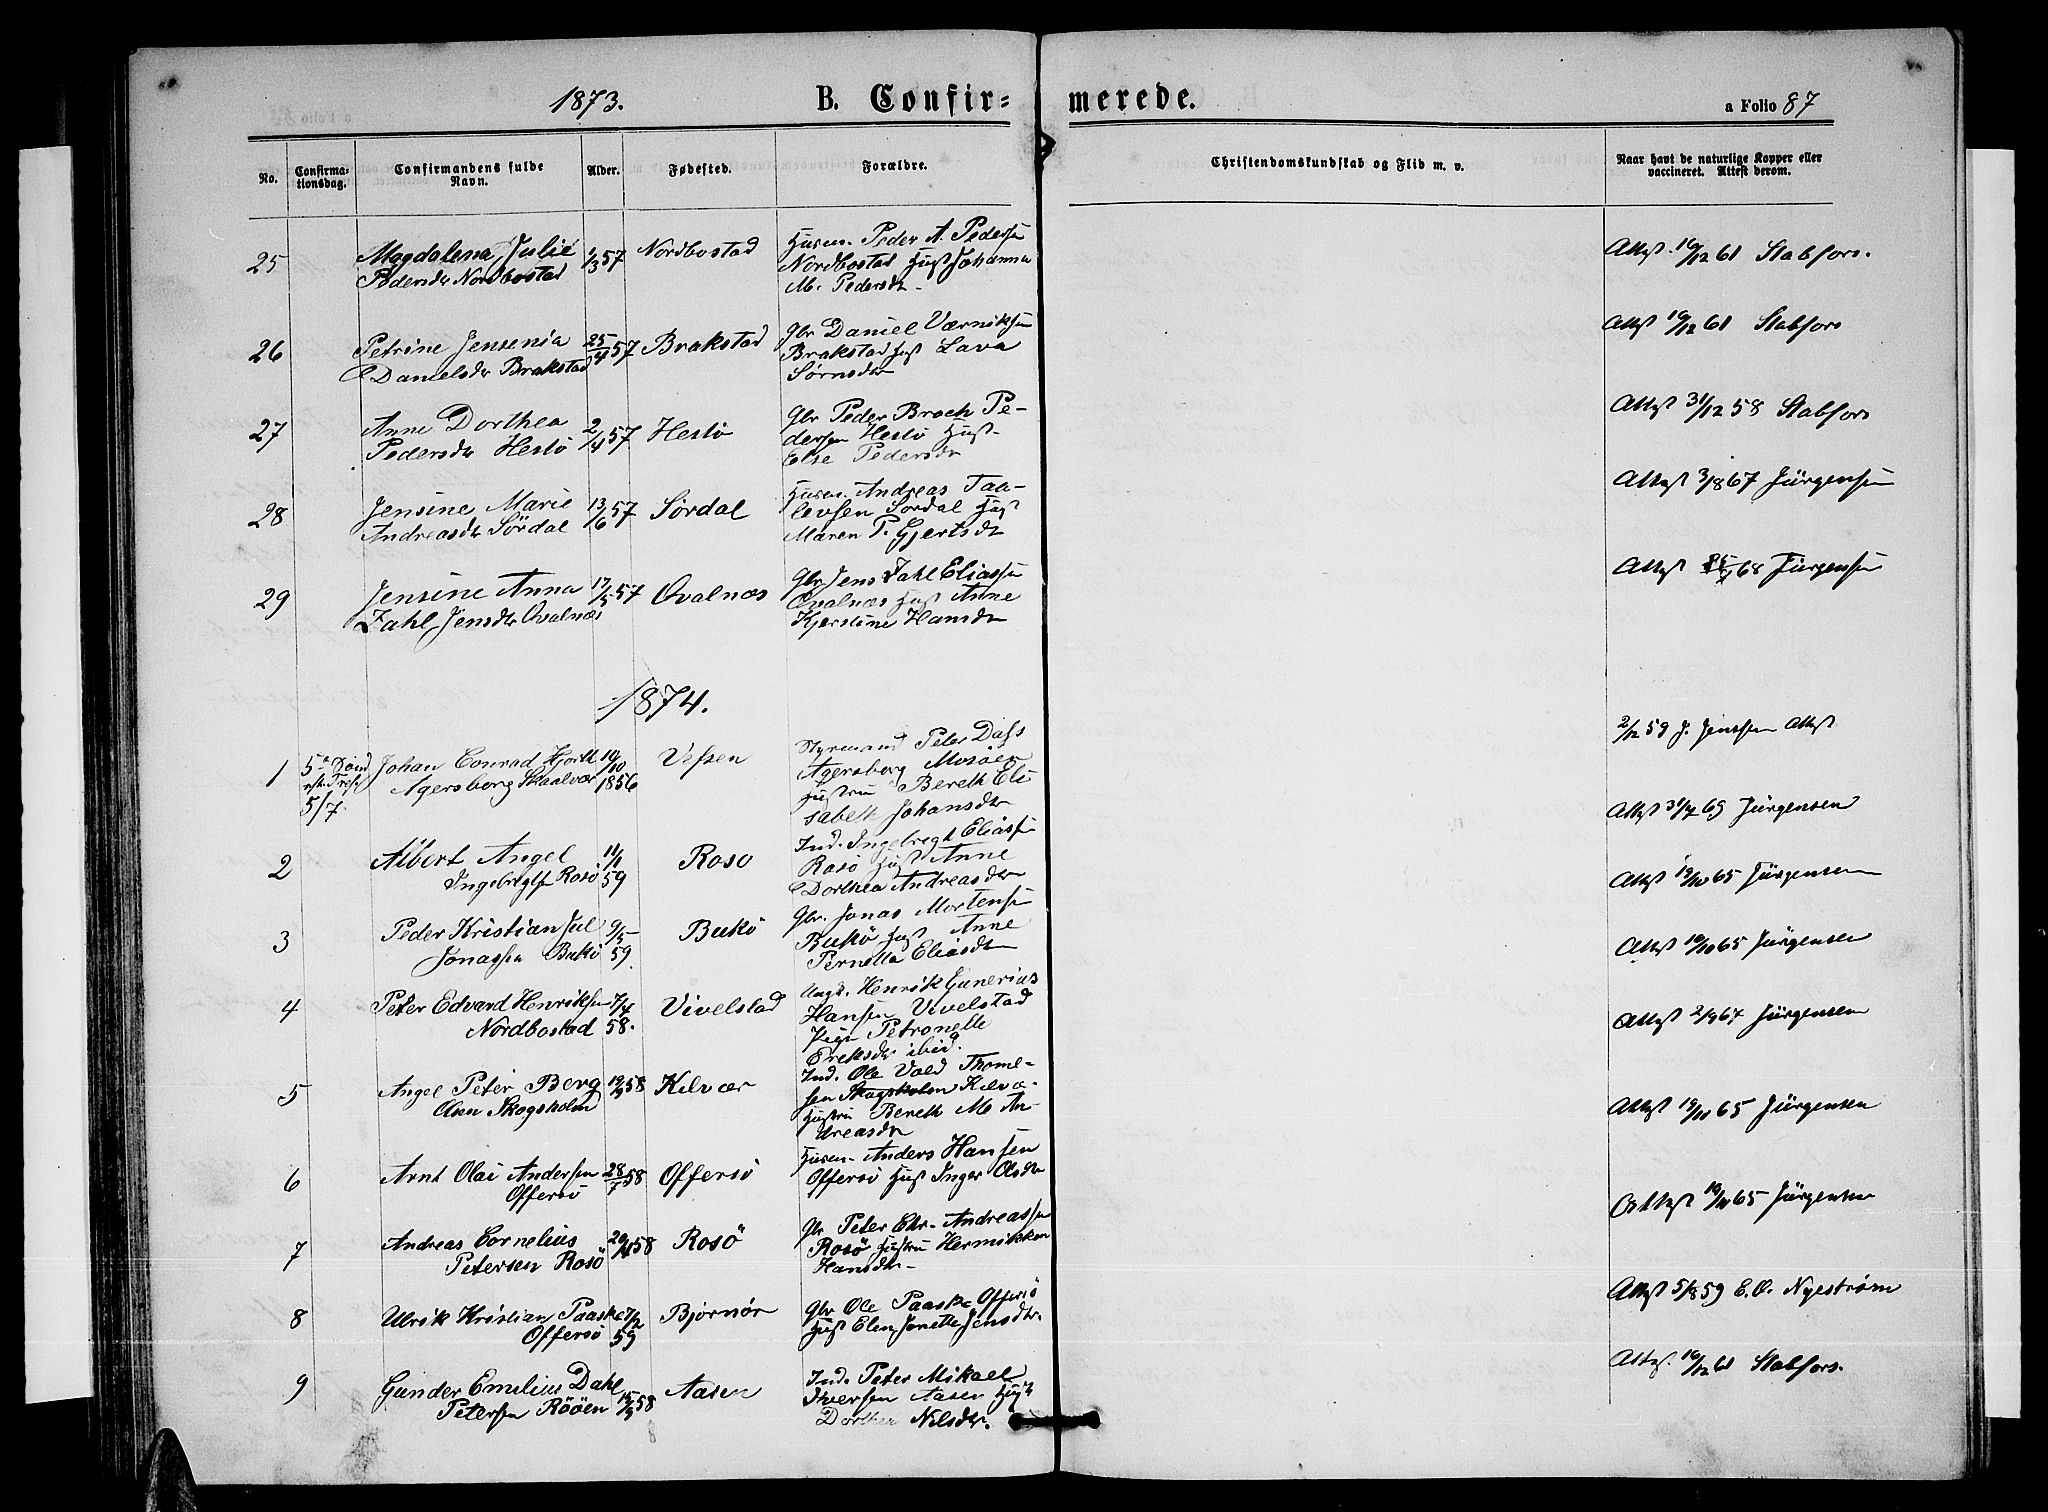 1873.
B. Confir=
merede.
a Folio 87
No.
Confirma-
tionsdag.
Confirmandens fulde
Navn.
Alder.
Fødested.
Forældre.
Christendomskundskab og Flid m. v.
Naar havt de naturlige Kopper eller
vaccineret. Attest derom.
25
Magdalena Julie
Pedersdr Nordbostad
1/3 57
Nordbostad
Husm. Peder A. Pedersen
Nordbostad Hust Johanna
M. Pedersdr
Attest 16/12 61 Stabfors.
26
Petrine Jensenia
Danielsdr Brakstad
25/4 57
Brakstad
Gbr Daniel Værniksen
Brakstad Hust Lava
Sørnsdr
Attest 16/12 61 Stabfors
27
Anne Dorthea
Pedersdr Hestö
2/4 57
Hestö
Gbr Peder Broch Pe-
dersen Hestö Hust-
Else Pedersdr
Attest 31/12 58 Stabfors
28
Jensine Marie
Andreasdr Sördal
13/6 57
Sørdal
Husm. Andreas Taa-
levsen Sordal Hust
Maren P. Gjertsdr
Attest 3/8 67 Jürgensen
29
Jensine Anna
Zahl Jensdr Qvalnæs
17/5 57
Qvalnæs
Gbr Jens Zahl Eliassen
Qvalnæs Hust Anne
Kjerstine Hansdr
Attest 68 Jürgensen
1874.
1
5te Sönd
eft. Tref
5/7
Johan Conrad Hjorth
Agersborg Skaalvær
10/10
1856
Vefsen
Styrmand Peter Dass
Agersborg Mosöen
Hustru Bereth Eli
sabeth Johansdr
2/12 59 J. Jenssen Attest
2
Albert Angel
Ingebrigtsen Rosö
11/1
59
Roso
Ind. Ingebregt Eliassen
Rosö Hust Anne
Dorthea Andreasdr
Attest 31/7 69 Jürgensen
3
Peder Kristian Jul
Jonassen Bukö
9/5
59.
Bukö
Gbr. Jonas Mortensen
Bukö Hust Anne
Pernella Eliasdr
Attest 19/10 65 Jürgensen
4
Peter Edvard Henriksen
Nordbostad
7/4
58.
Vivelstad
Ungk. Henrik Gunerius
Hansen Vivelstad
Pige Petronelle
Ereksdr ibid.
Attest 19/10 65 Jürgensen
5
Angel Peter Berg
Olsen Skogsholm
19/9 58
Kilvær
Ind. Ole Vold Thome-
sen Skogsholm Kilvæ-
Hustru Bereth M An-
dreasdr
Attest 2/9 67 Jürgensen
6
Arnt Olai Andersen
Offersö
28/7 58
Offersö
Husm- Anders Hansen
Offersö Hust Inger Olsdr
Attest 19/10 65 Jürgensen
7
Andreas Cornelius
Petersen Rosö
20/11 58
Rosö
Gbr Peter Chr. Andreassen
Rosö Hustru Hermikken
Hansdr
Attest 19/10 65 Jürgensen
8
Ulrik Kristian Paaske
Offersö
7/2
59
Bjornör
Gbr Ole Paaske Offersö
Hust Elen Jonette Jensdr.
Attest 5/8 59 E. O. Nyeström
9
Gunder Emilius Dahl
Petersen Rööen
15/9 58
Aasen
Ind. Peter Mikael
Iversen Aasen Hust
Dorthea Nilsdr.
Attest. 16/12 61 Stabfors.